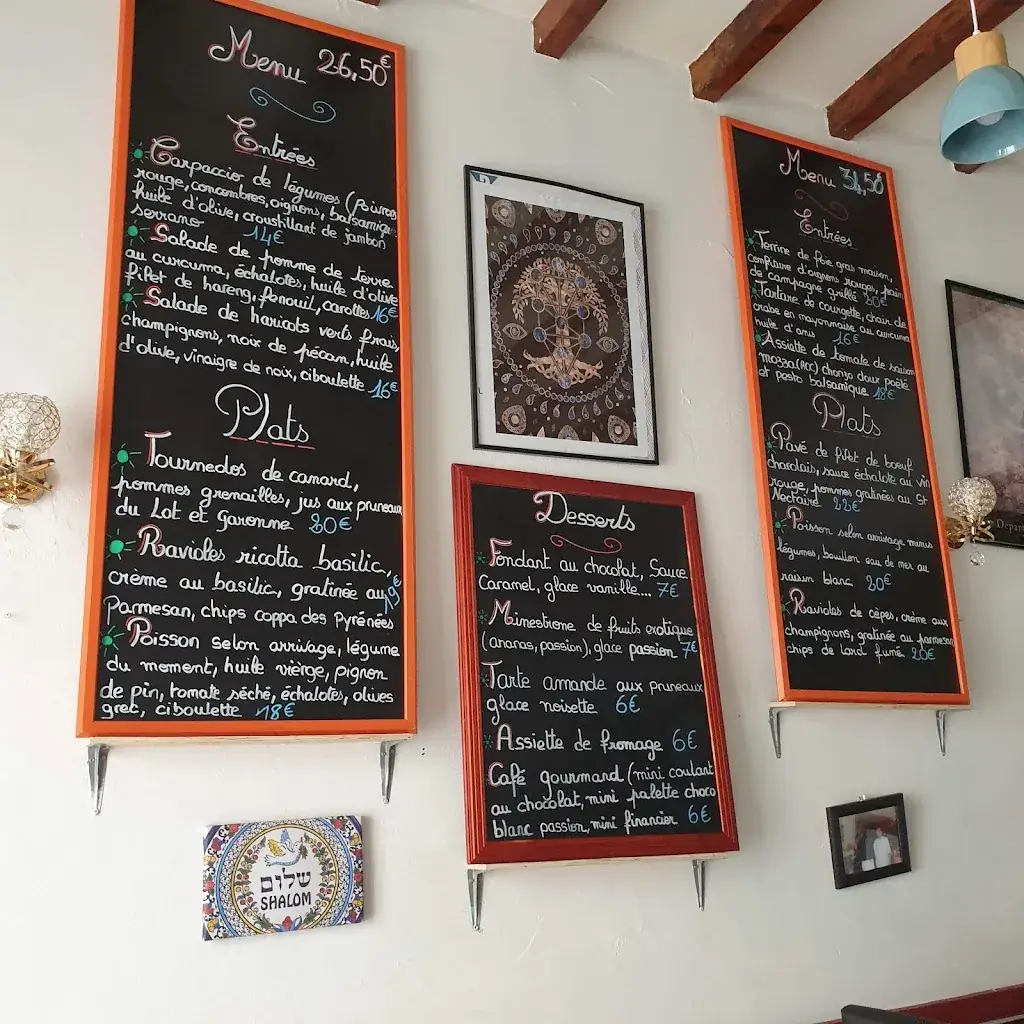 Menu 26,50€
Entrées
Carpaccio de légumes (poivrons
rouge, concombres, oignons, balsamique,
huile d'olive, croustillant de jambon
serrano 14€
Salade de pomme de terre
au curcuma, échalotes, huile d'olive
filet de hareng, fenouil, carottes 16€
Salade de haricots verts frais,
champignons, noix de pécan, huile
d'olive, vinaigre de noix, ciboulette 16€
Plats
Tournedos de canard,
pommes grenailles, jus aux pruneaux
du Lot et Garonne 20€
Ravioles ricotta basilic,
crème au basilic, gratinée au
Parmesan, chips coppa des Pyrénées 19€
Poisson selon arrivage, légume
du moment, huile vierge, pignon
de pin, tomate séché, échalotes, olives
grec, ciboulette 18€
SHALOM
שלום
Desserts
Fondant au chocolat, Sauce
Caramel, glace vanille... 7€
Minestrone de fruits exotique
(ananas, passion), glace passion 7€
Tarte amande aux pruneaux
glace noisette 6€
Assiette de fromage 6€
Café gourmand (mini coulant
au chocolat, mini palette choco
blanc passion, mini financier 6€
Menu 34,50€
Entrées
Terrine de foie gras maison,
confiture d'oignons rouges, pain
de campagne grillé 20€
Tartare de courgette, chair de
crabe en mayonnaise au curcuma
huile d'anis 16€
Assiette de tomate de saison
mozza (AOC) chorizo doux poêlé
et pesto balsamique 18€
Plats
Pavé de filet de boeuf
charolais, sauce échalote au vin
rouge, pommes gratinées au St
Nectaire 22€
Poisson selon arrivage minus
légumes, bouillon eau de mer au
raisin blanc 20€
Ravioles de cèpes, crème aux
champignons, gratinée au parmesan
chips de lard fumé 20€